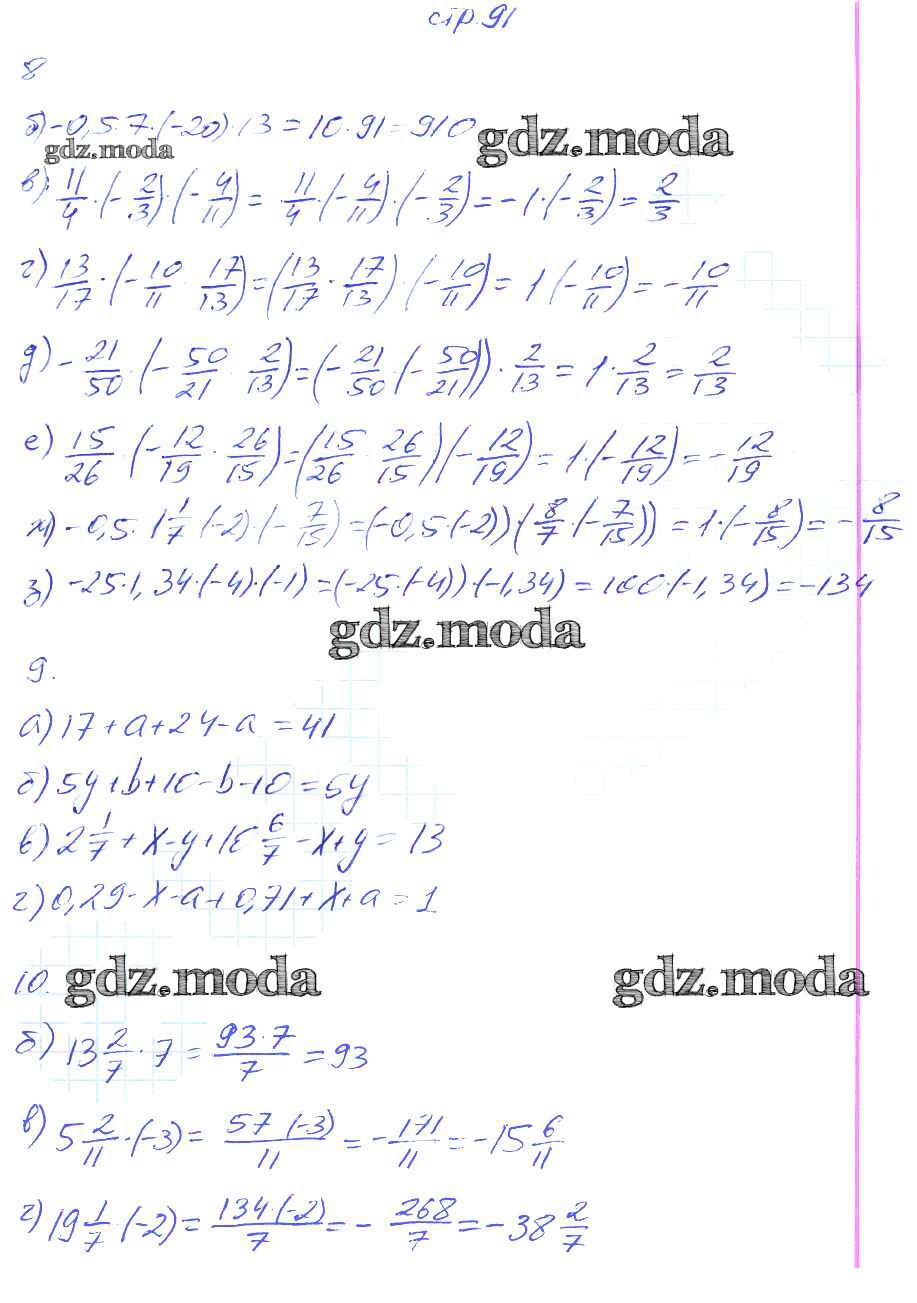 стр. 91
8
б) -0,5·7·(-20)·13 = 10·91 = 910
gdz.moda gdz.moda
в) 11/4 · (-2/3) · (-4/11) = 11/4 · (-4/11) · (-2/3) = -1 · (-2/3) = 2/3
г) 13/17 · (-10/11 · 17/13) = (13/17 · 17/13) · (-10/11) = 1 (-10/11) = -10/11
д) -21/50 · (-50/21 · 2/13) = (-21/50 (-50/21)) · 2/13 = 1 · 2/13 = 2/13
е) 15/26 · (-12/19 · 26/15) = (15/26 · 26/15) (-12/19) = 1 · (-12/19) = -12/19
ж) -0,5 · 1 1/7 · (-2) · (-7/15) = (-0,5·(-2)) · (8/7 · (-7/15)) = 1 · (-8/15) = -8/15
з) -25·1,34·(-4)·(-1) = (-25·(-4))·(-1,34) = 100·(-1,34) = -134
gdz.moda
9.
а) 17+a+24-a = 41
б) 5y+b+10-b-10 = 5y
в) 2 1/7 + x-y+1 6/7 - x+y = 13
г) 0,29-x-a+0,71+x+a = 1
10. gdz.moda gdz.moda
б) 13 2/7 · 7 = 93·7/7 = 93
в) 5 2/11 · (-3) = 57 (-3)/11 = -171/11 = -15 6/11
г) 19 1/7 · (-2) = 134·(-2)/7 = -268/7 = -38 2/7